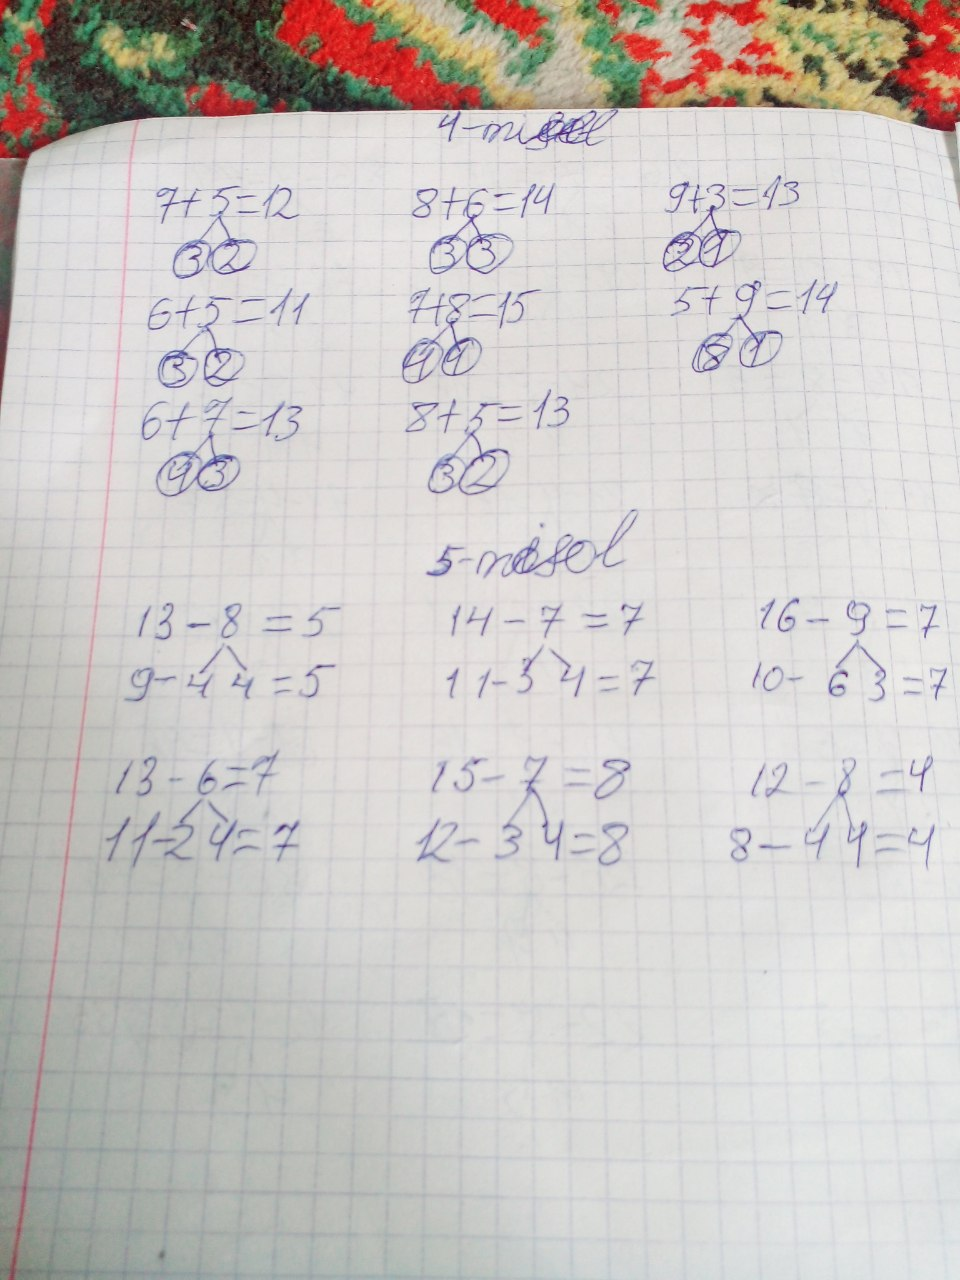 4-misol
7+5=12 8+6=14 9+3=13
3 2 3 3 2 1
6+5=11 7+8=15 5+9=14
3 2 4 4 8 1
6+7=13 8+5=13
4 3 3 2
5-misol
13-8=5 14-7=7 16-9=7
9-4 4=5 11-3 4=7 10-6 3=7
13-6=7 15-7=8 12-8=4
11-2 4=7 12-3 4=8 8-4 4=4